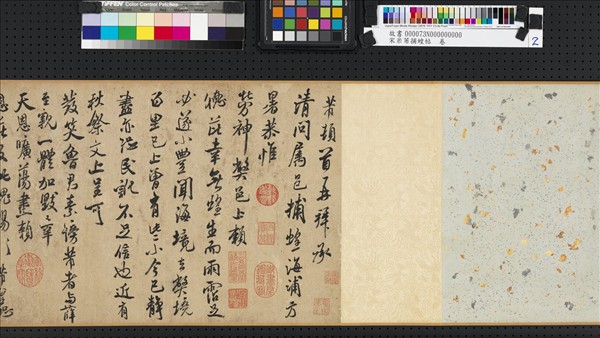 TIFFEN Color Control Patches
故書 000073N000000000
宋米芾捕蝗帖 卷
2
芾頓首再拜承
清問屬邑捕蝗海浦方
暑恭惟
勞神弊邑上賴
德芘幸無蝗生而雨露足
必遂小豐聞海境去弊境
百里已上皆有些小今已靜
盡亦恐民訛不足信也近有
秋祭文上呈可
發笑魯君素誘芾者與薛
至親一體加毀之辜
天恩曠蕩盡賴